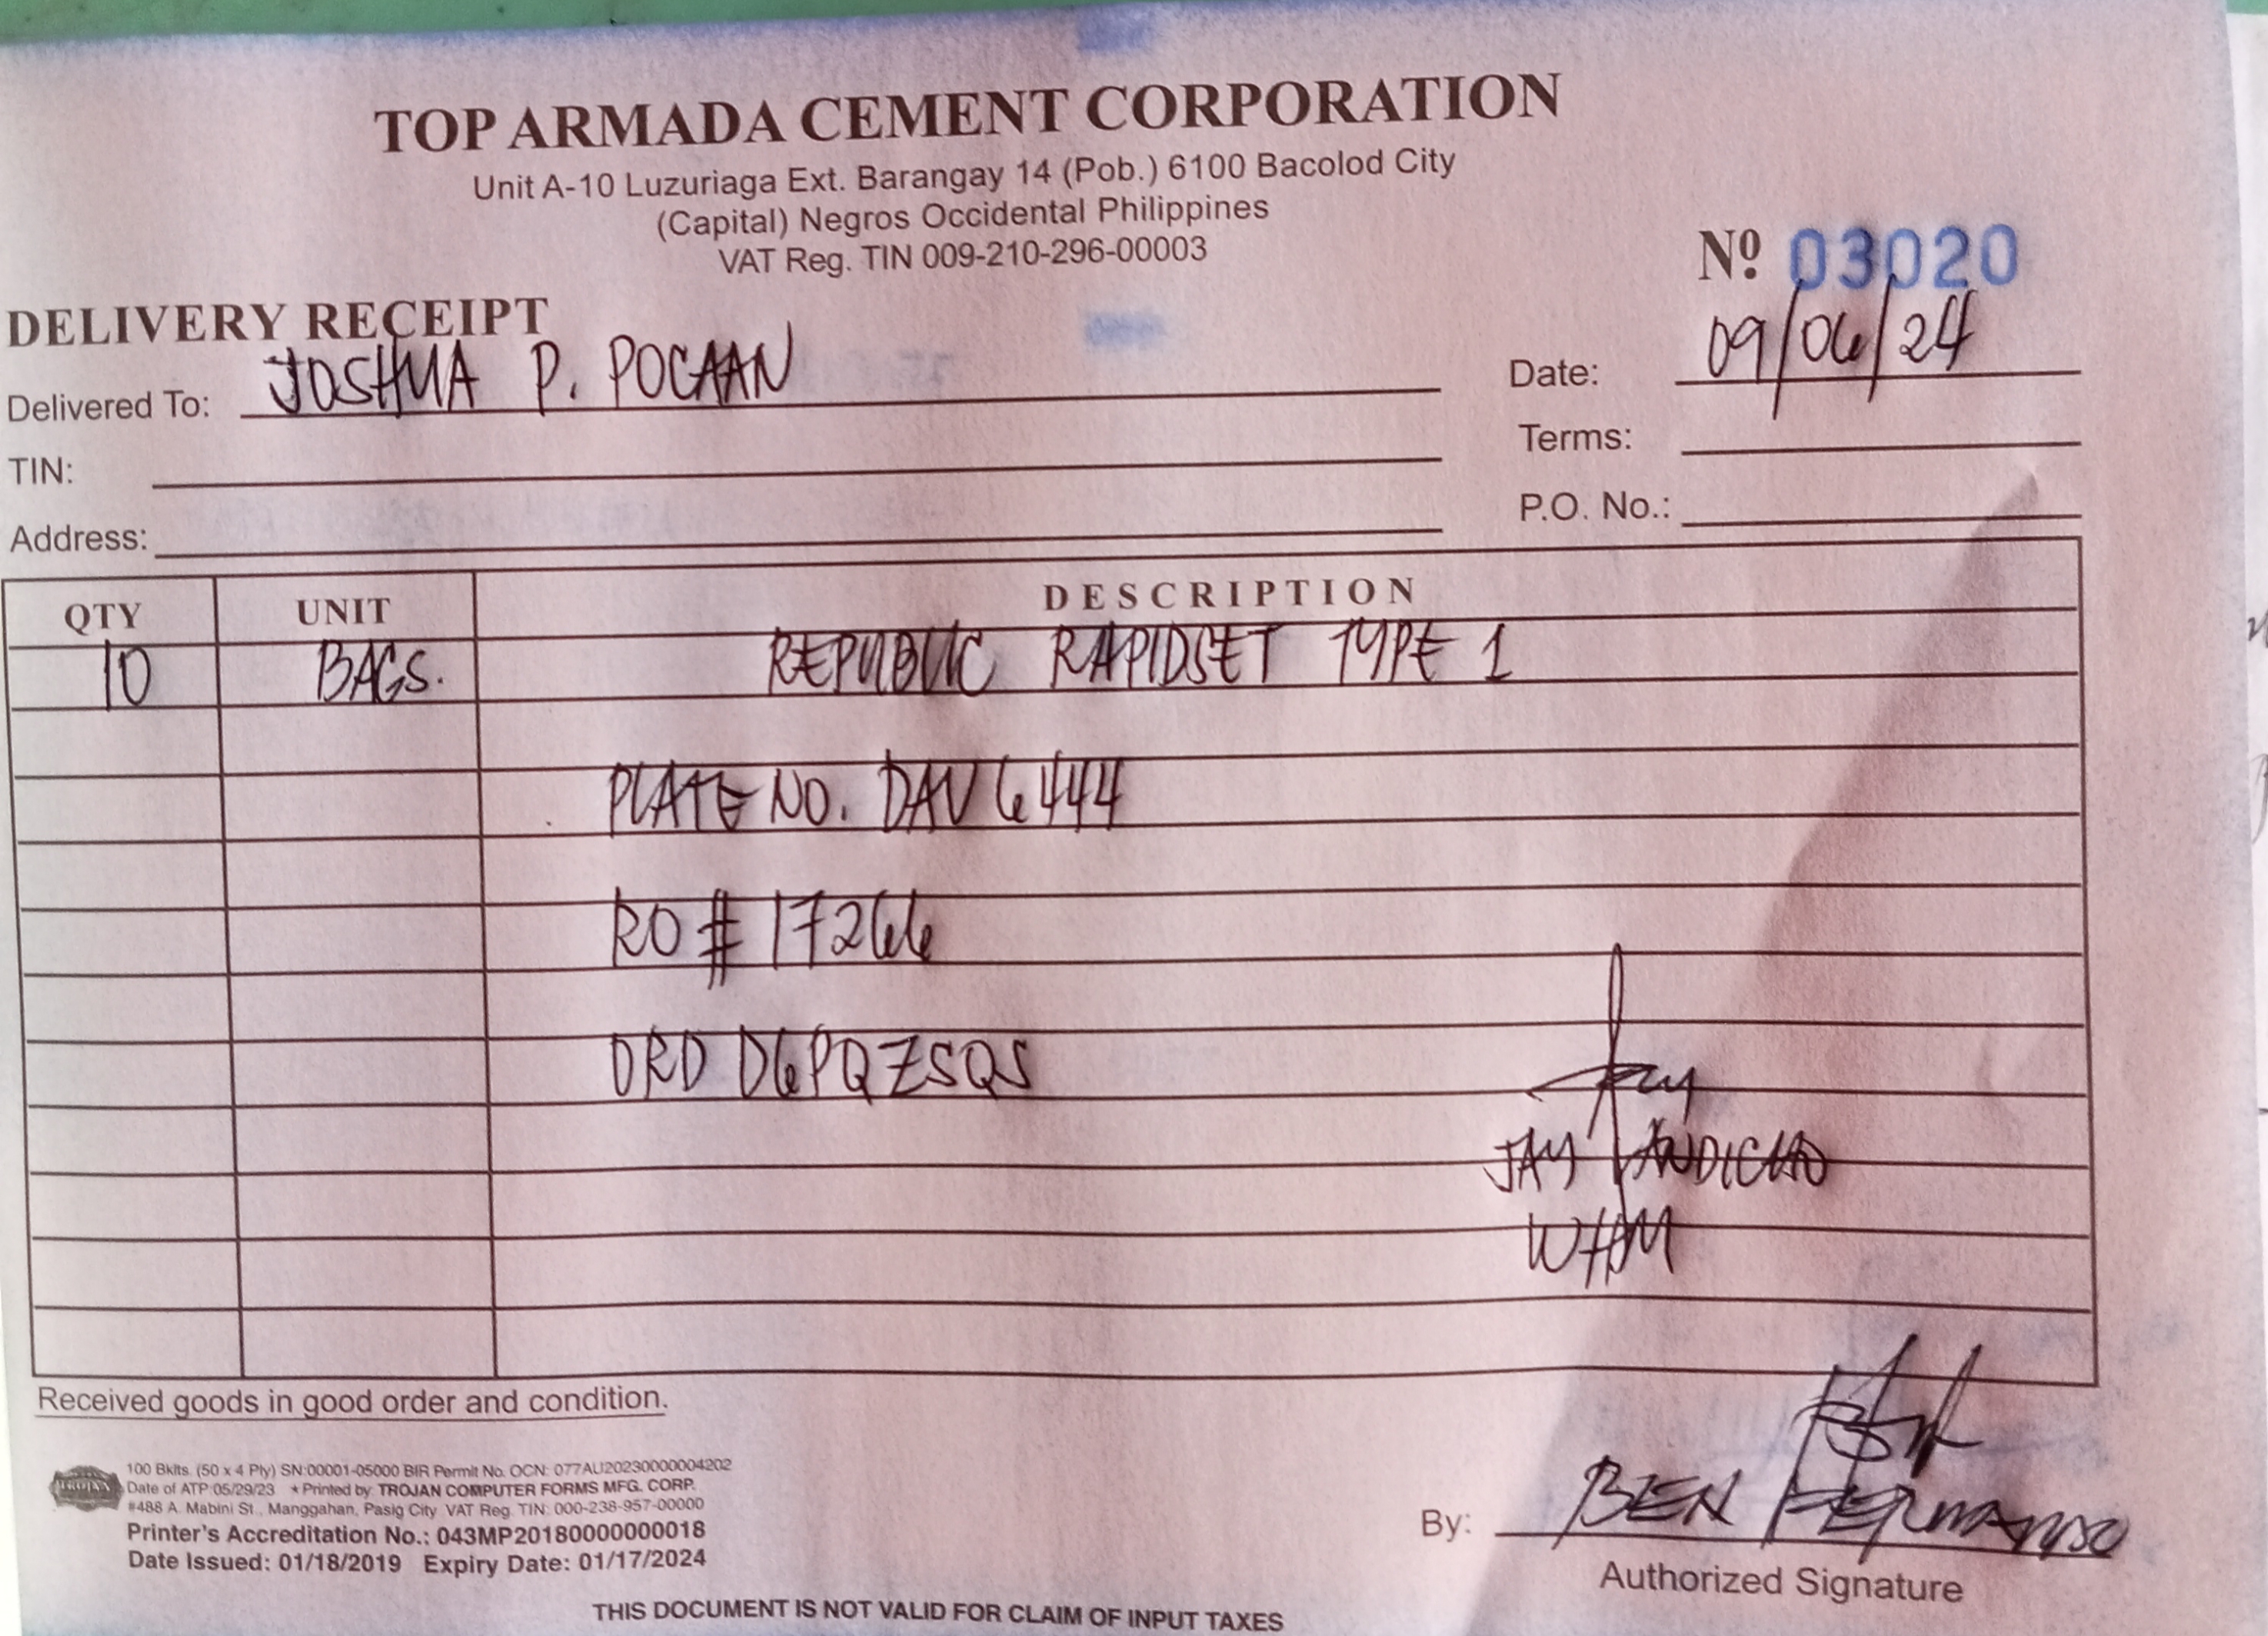 TOP ARMADA CEMENT CORPORATION
Unit A-10 Luzuriaga Ext. Barangay 14 (Pob.) 6100 Bacolod City
(Capital) Negros Occidental Philippines
VAT Reg. TIN 009-210-296-00003
Nº 03020
DELIVERY RECEIPT
Delivered To: JOSHUA P. POCAAN
Date: 09/06/24
TIN:
Terms:
Address:
P.O. No.:
QTY UNIT DESCRIPTION
10 BAGS. REPUBLIC RAPIDSET TYPE 1
PLATE NO. DAV 6444
RO # 17266
ORD D6PQZSQS
JAY ANDICHO
WHM
Received goods in good order and condition.
TROJAN
100 Bklts. (50 x 4 Ply) SN:00001-05000 BIR Permit No. OCN: 077AU20230000004202
Date of ATP:05/29/23 ★ Printed by: TROJAN COMPUTER FORMS MFG. CORP.
#488 A. Mabini St., Manggahan, Pasig City VAT Reg. TIN: 000-238-957-00000
Printer's Accreditation No.: 043MP20180000000018
Date Issued: 01/18/2019 Expiry Date: 01/17/2024
By: BEN HERMANSO
Authorized Signature
THIS DOCUMENT IS NOT VALID FOR CLAIM OF INPUT TAXES